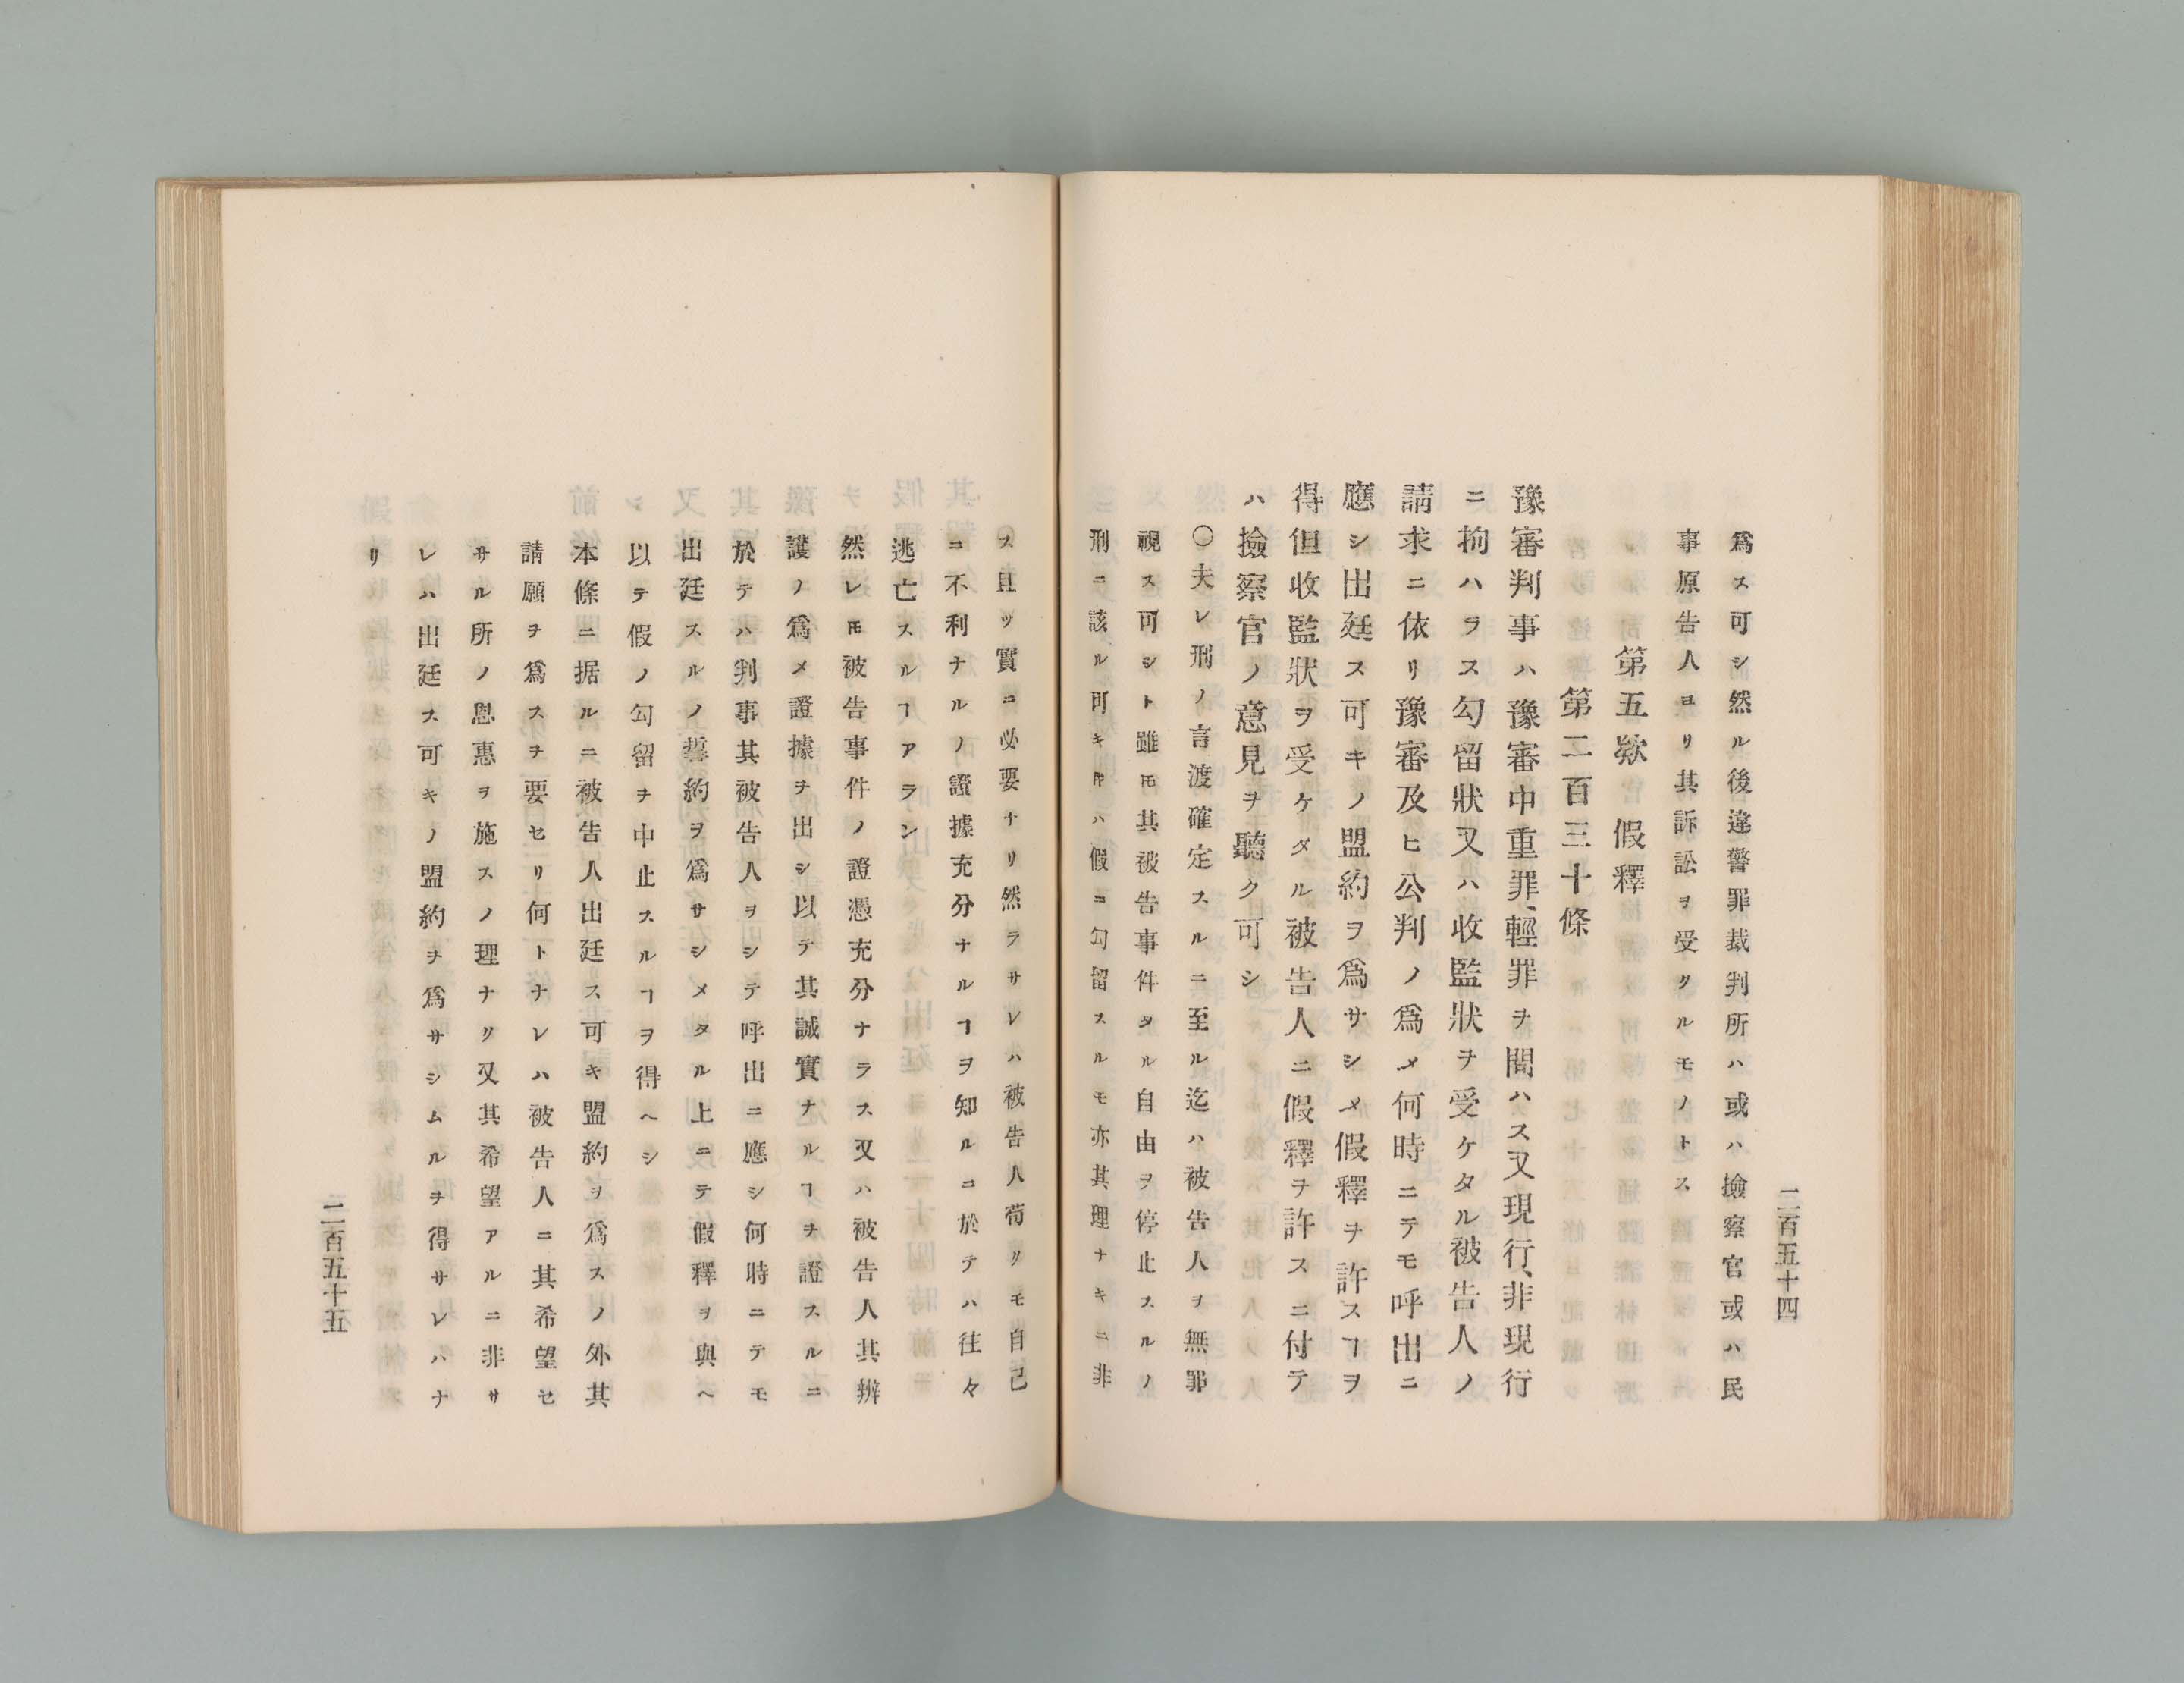 二百五十四
爲ス可シ然ル後違警罪裁判所ハ或ハ撿察官或ハ民
事原告人ヨリ其訴訟ヲ受クルモノトス
第五欵 假釋
第二百三十條
豫審判事ハ豫審中重罪、輕罪ヲ問ハス又現行、非現行
ニ拘ハラス勾留狀又ハ收監狀ヲ受ケタル被告人ノ
請求ニ依リ豫審及ヒ公判ノ爲メ何時ニテモ呼出ニ
應シ出廷ス可キノ盟約ヲ爲サシメ假釋ヲ許スヿヲ
得但收監狀ヲ受ケタル被告人ニ假釋ヲ許スニ付テ
ハ撿察官ノ意見ヲ聽ク可シ
〇夫レ刑ノ言渡確定スルニ至ル迄ハ被告人ヲ無罪
視ス可シト雖𪜈其被告事件タル自由ヲ停止スルノ
刑ニ該ル可キ時ハ假ニ勾留スルモ亦其理ナキニ非
ス且ツ實ニ必要ナリ然ラサレハ被告人苟リモ自己
ニ不利ナルノ證據充分ナルヿヲ知ルニ於テハ往々
逃亡スルヿアラン
然レ𪜈被告事件ノ證憑充分ナラス又ハ被告人其辨
護ノ爲メ證據ヲ出シ以テ其誠實ナルヿヲ證スルニ
於テハ判事其被告人ヲシテ呼出ニ應シ何時ニテモ
出廷スルノ誓約ヲ爲サシメタル上ニテ假釋ヲ與ヘ
以テ假ノ勾留ヲ中止スルヿヲ得ヘシ
本條ニ据ルニ被告人出廷ス可キ盟約ヲ爲スノ外其
請願ヲ爲スヲ要セリ何トナレハ被告人ニ其希望セ
サル所ノ恩惠ヲ施スノ理ナク又其希望アルニ非サ
レハ出廷ス可キノ盟約ヲ爲サシムルヲ得サレハナ
リ
二百五十五